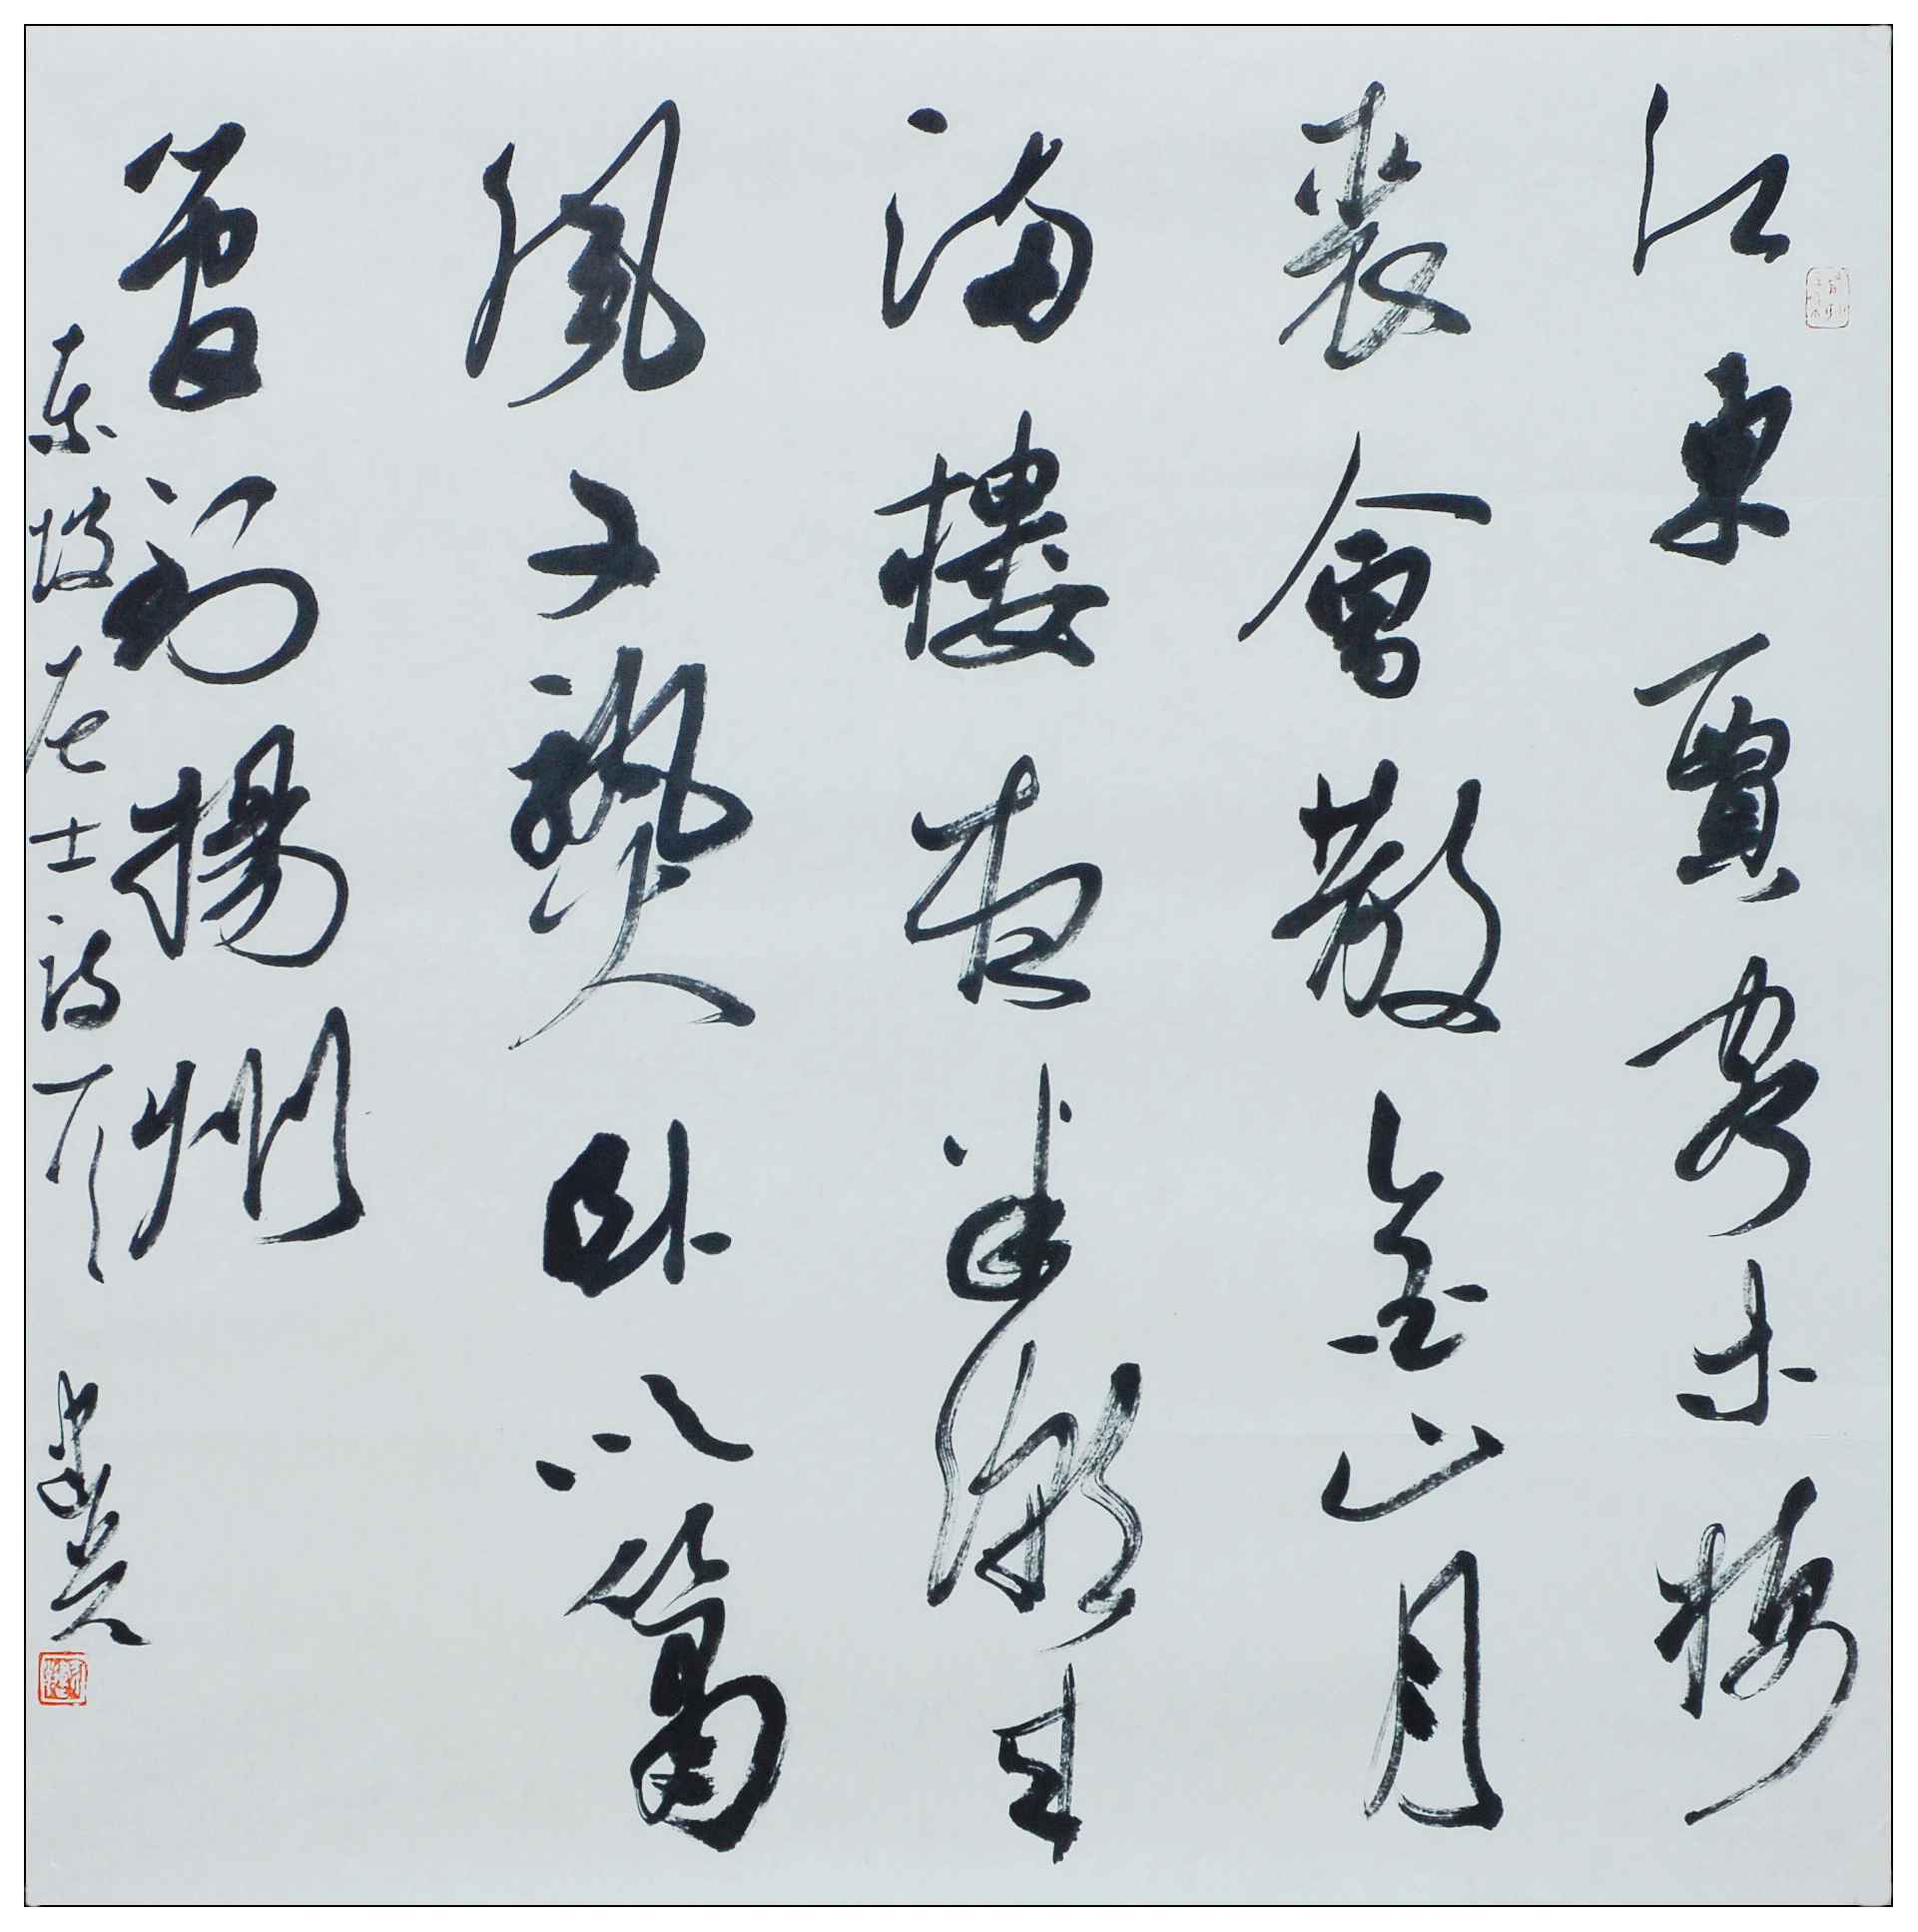 江東賈客木棉
裘會散金山月
滿樓夜半潮来
風又熟臥吹簫
管到揚州
東坡居士詩